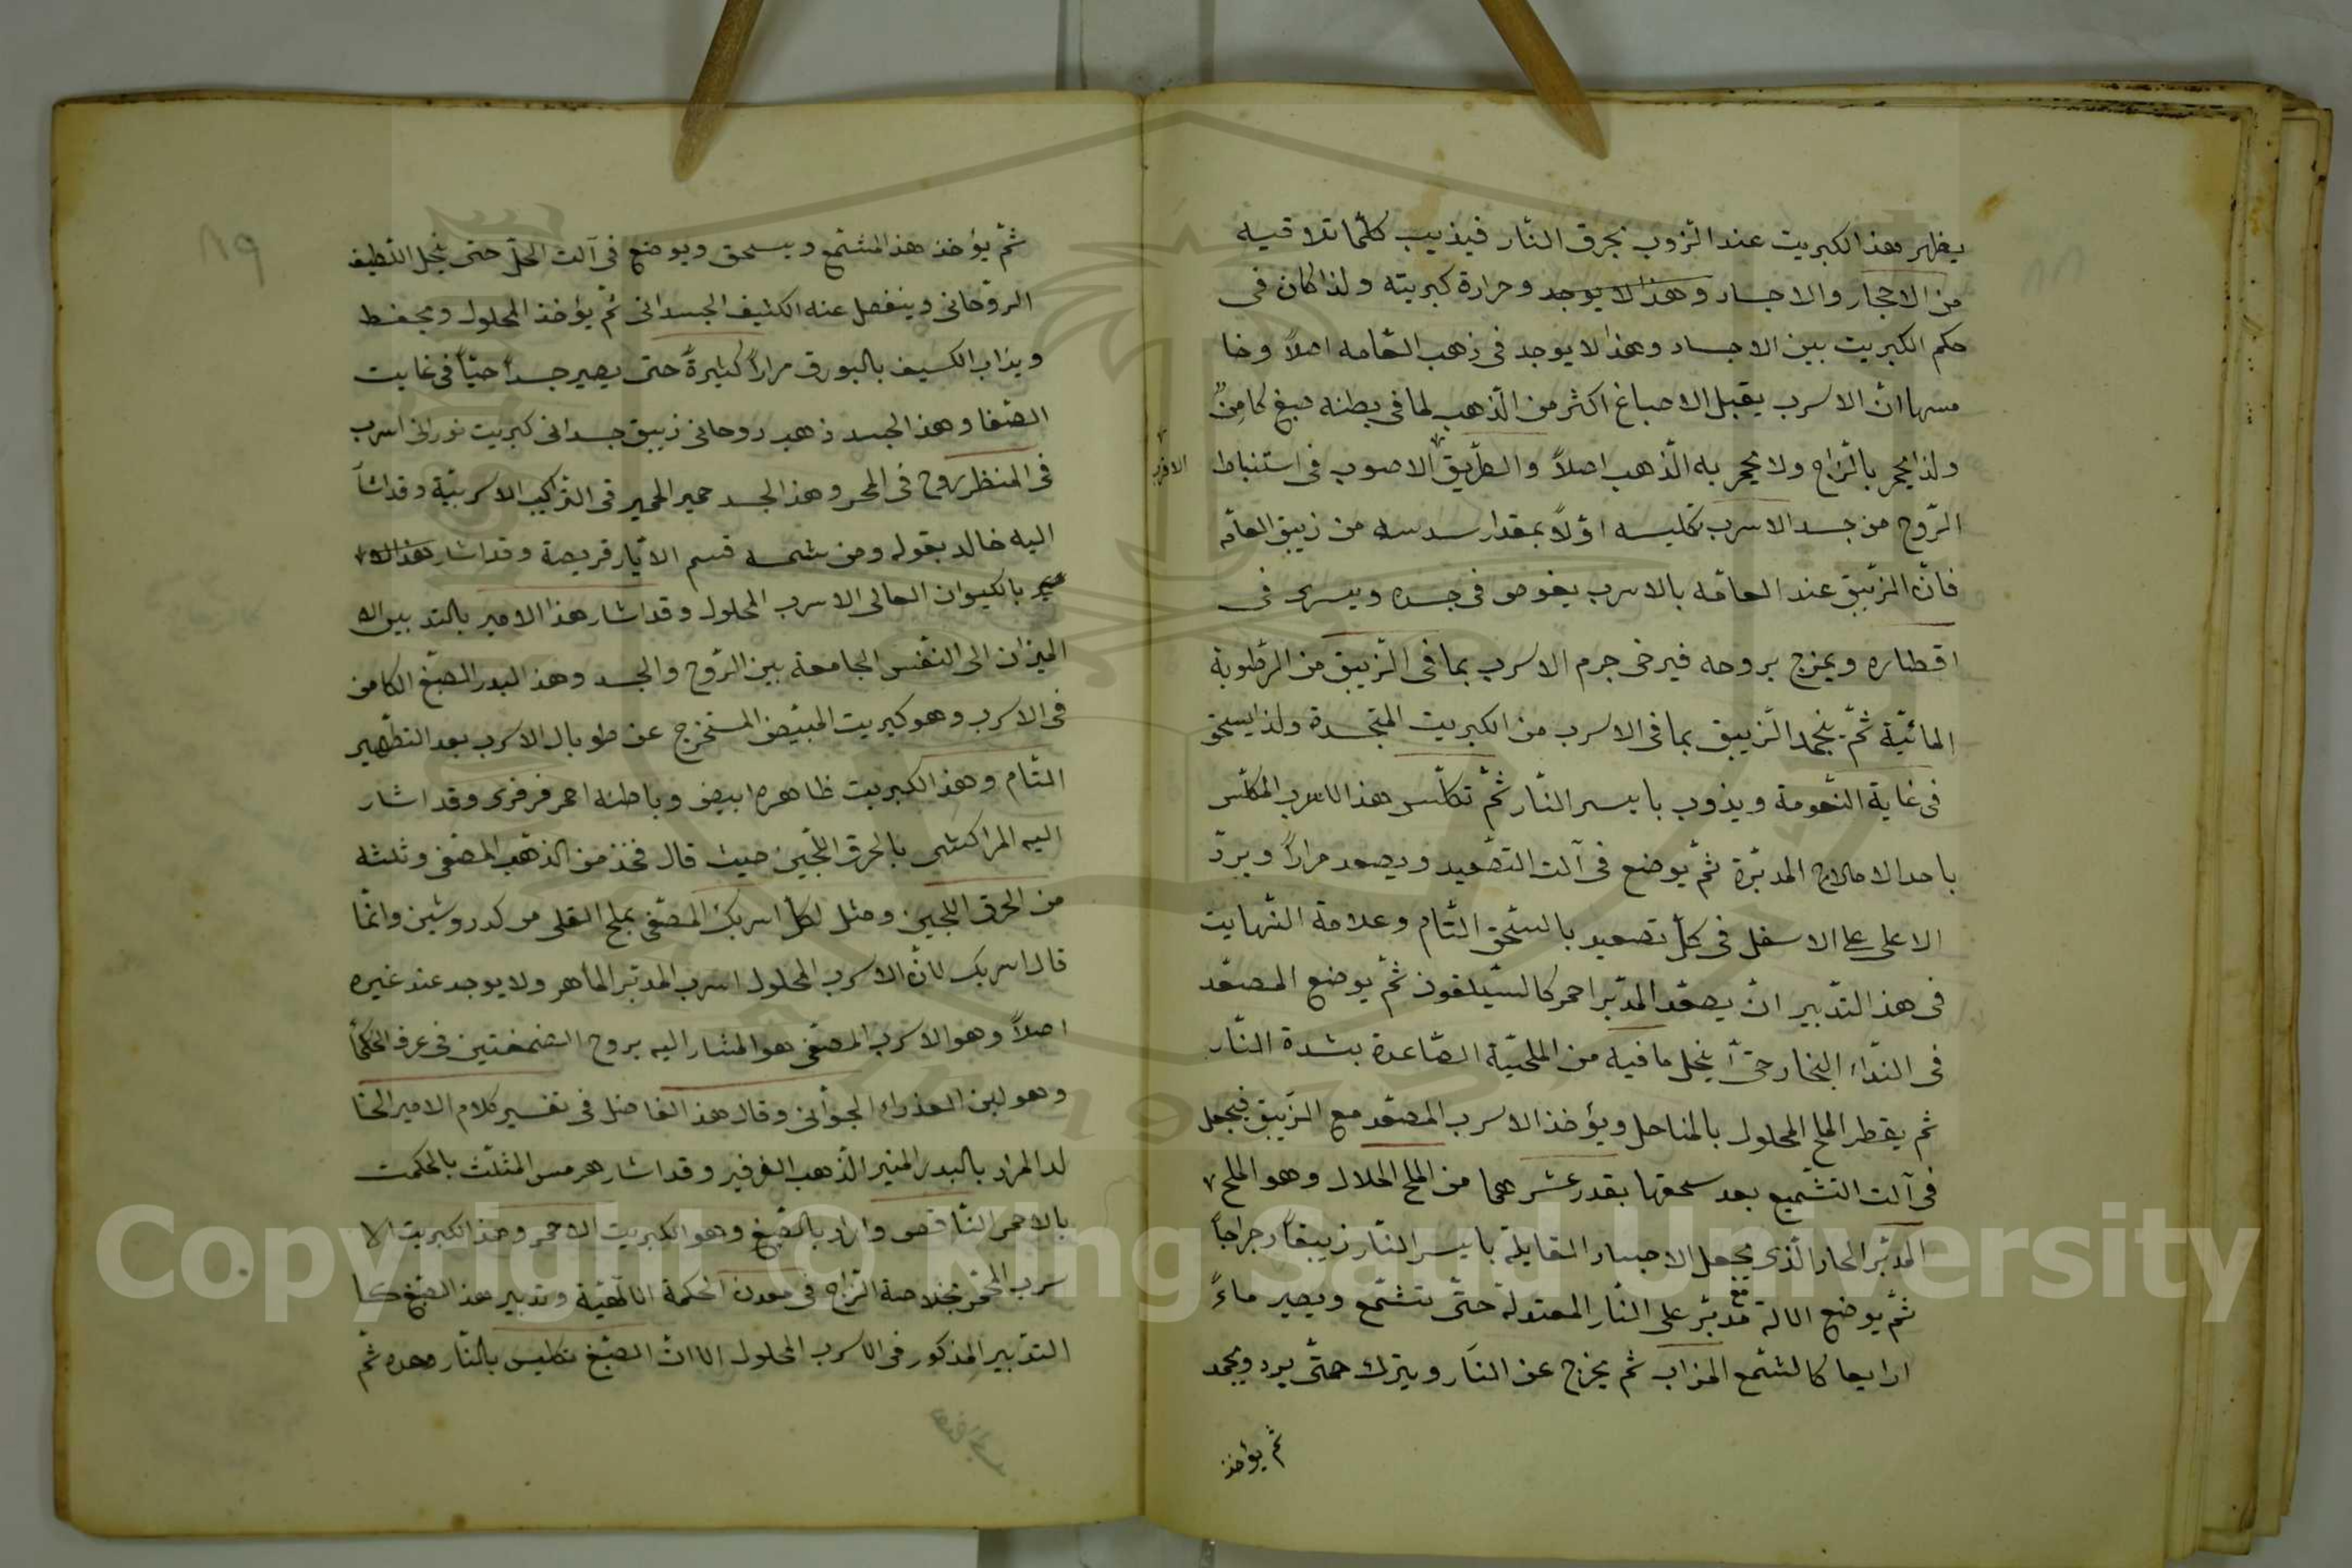 يظهر هذا الكبريت عند الزوب بحرق النار فيذيب كلما تلاقيه
من الاحجار والاجساد وهذا لا يوجد وحرارة كبريته ولذا كان فى
حكم الكبريت بين الاجساد وهذا لا يوجد فى ذهب العامه اصلاً وخا
مسها ان الاسرب يقبل الاصباغ اكثر من الذهب لما فى بطنه صبغ كامن
ولذا يحمر بالزاج ولا يحمر به الذهب اصلاً والطريق الاصوب فى استنباط
الروح من جسد الاسرب تكليسه اولاً بمقدار سدسه من زيبق العامه
فان الزيبق عند العامه بالاسرب يغوص فى جسده ويسرى فى
اقطاره ويمزج بروحه فيرخى جرم الاسرب بما فى الزيبق من الرطوبة
المائية ثم ينجمد الزيبق بما فى الاسرب من الكبريت المتجسدة ولذا يسحق
فى غاية النعومة ويذوب بايسر النار ثم تكلس هذا الاسرب المكلس
باحد الاملاح المدبرة ثم يوضع فى آلت التصعيد ويصعد مراراً ويرد
الاعلى على الاسفل فى كل تصعيد بالسحق التام وعلامة النهايت
فى هذ التدبير ان يصعد المدبر احمر كالسيلقون ثم يوضع المصعد
فى النداء البخار حتى ينحل ما فيه من الملحية الصاعدة بشدة النار
ثم يقطر الملح المحلول بالمناحل ويؤخذ الاسرب المصعد مع الزيبق فيجعل
فى آلت التشميع بعد سحقها بقدر عشرهما من الملح الحلال وهو الملح
المدبر الحار الذى يجعل الاجساد القابلة بايسر النار زيبقاً رجراجاً
ثم يوضع الالة مع مدبر على النار المعتدلة حتى تتشمع ويصير ماءً
كالشمع المزاب ثم يخرج عن النار ويترك حتى يبرد ويجمد
ثم يؤخذ
٨٩
ثم يؤخذ هذ المشتمع ويسحق ويوضع فى آلت الحل حتى ينحل اللطيف
الروحانى وينفصل عنه الكثيف الجسدانى ثم يؤخذ المحلول ويحفظ
ويذاب الكسيف بالبورق مراراً كثيرةً حتى يصير جسداً حياً فى غايت
الصفا وهذ الجسد ذهب روحانى زيبق جسدانى كبريت نورانى اسرب
فى المنظر روح فى المحر وهذ الجسد حمير الحمير فى التراكيب الاسربية وقد اشا
اليه خالد بقوله ومن شمسه قسم الايار قريصة وقد اشار هذ الا
بالكيوان العالى الاسرب المحلول وقد اشار هذا الامير بالتد بين الا
الميزان الى النفس الجامعة بين الروح والجسد وهذ البدر الصبغ الكامن
فى الاسرب وهو كبريت المبيض المستخرج عن طوبال الاسرب بعد التطهير
التام وهذ الكبريت ظاهره ابيض وباطنه احمر فرفرى وقد اشار
اليه المراكشى بالحرق اللجين حيث قال فخذ من الذهب المصفى وثلثه
من الحرق اللجين ومثل لكل اسربك المصفى بملح القلى من كدر وشين وانما
قال اسربك لان الاسرب المحلول اسرب المدبر الماهر ولا يوجد عند غيره
اصلاً وهو الاسرب المصفى هو المشار اليه بروح الضمغتين فى عرف الحكما
وهو لبن العذراء الجوانى وقال هذ الفاضل فى تفسير كلام الامير الخا
لد المراد بالبدر المنير الذهب الفرفير وقد اشار هرمس المثلث بالحكمت
بالاحمر الناقص واراد بالصبغ وهو الكبريت الاحمر وهذ الكبريت الا
سرب المحمر بخلاصة الزاج فى معدن الحكمة الالهية وتدبير هذ الصبغ كا
التدبير المذكور فى الاسرب المحلول الا ان الصبغ تكليس بالنار وحده ثم
Copyright © King Saud University